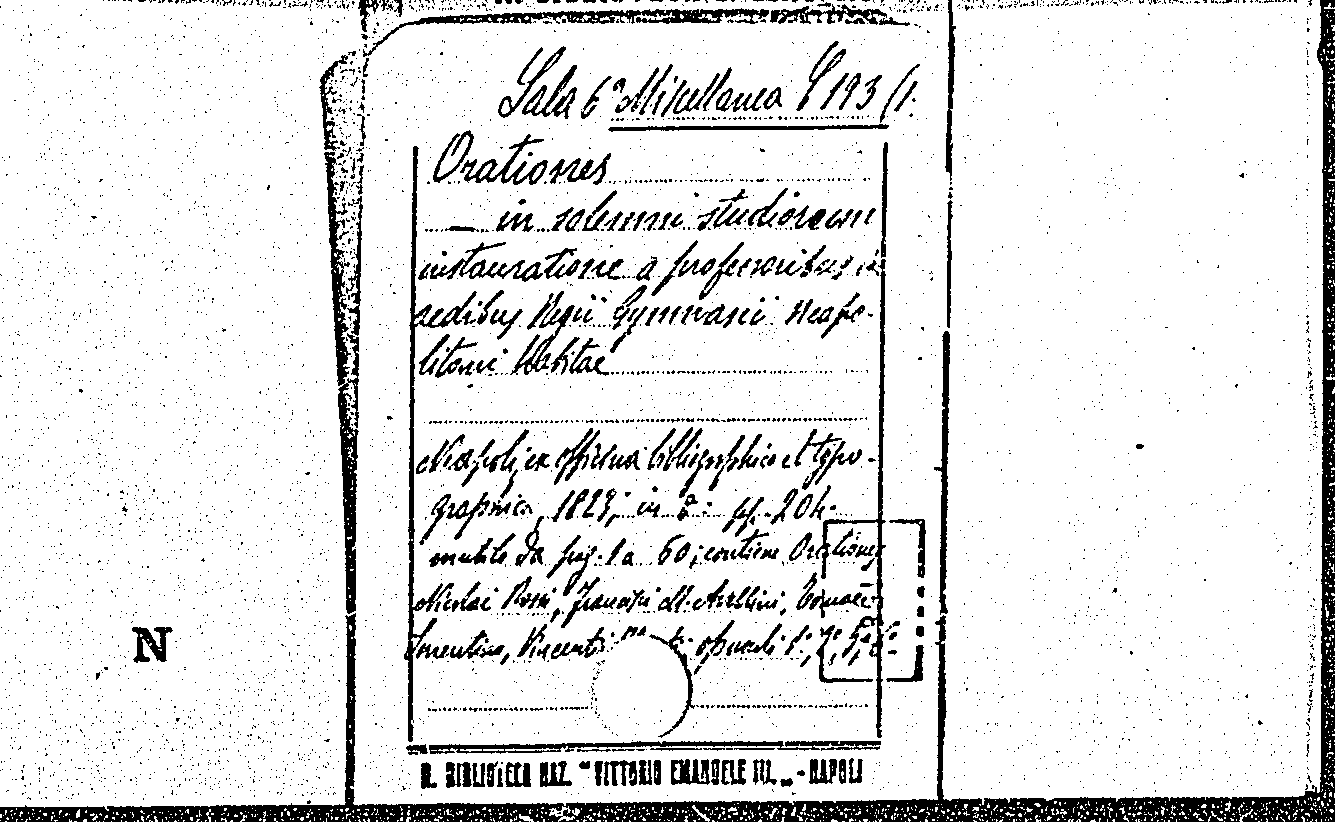 Sala 6ª Miscellanea C 193/1.
Orationes
— in solemni studiorum
instauratione a professoribus in
aedibus Regii Gymnasii Neapo-
litani habitae
Neapoli, ex officina bibliographica et typo-
graphica, 1829; in 8°: pp. 204.
mutilo da pag. 1 a 60; contiene Orationes
Nicolai Rossi, Francisci M. Avellini,
Vincenti opuscoli
N
R. BIBLIOTECA NAZ. "VITTORIO EMANUELE III." - NAPOLI